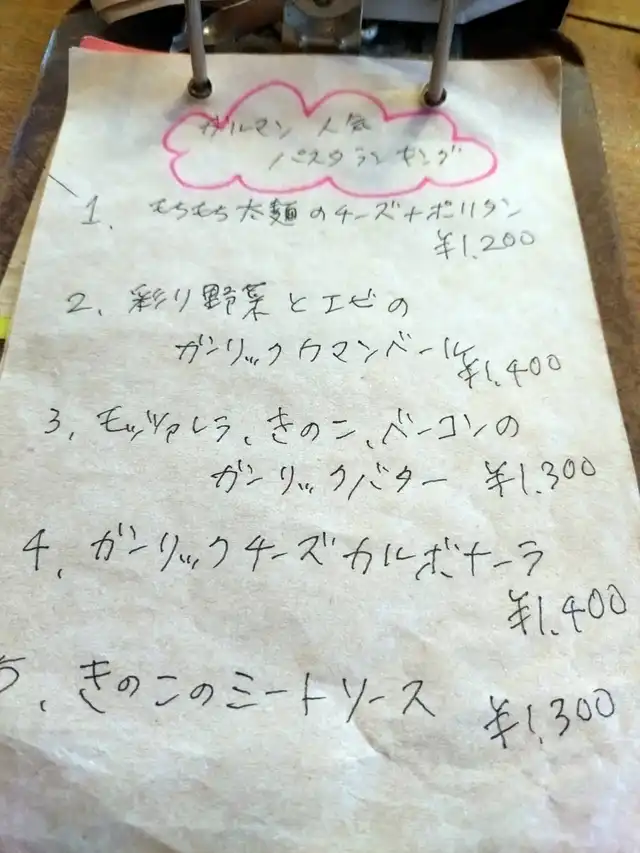 ガルマン 人気
パスタランキング
1. もちもち太麺のチーズナポリタン
¥1,200
2. 彩り野菜とエビの
ガーリッククウマンベール ¥1,400
3. モッツァレラ、きのこ、ベーコンの
ガーリックバター ¥1,300
4. ガーリックチーズカルボナーラ
¥1,400
5. きのこのミートソース
¥1,300